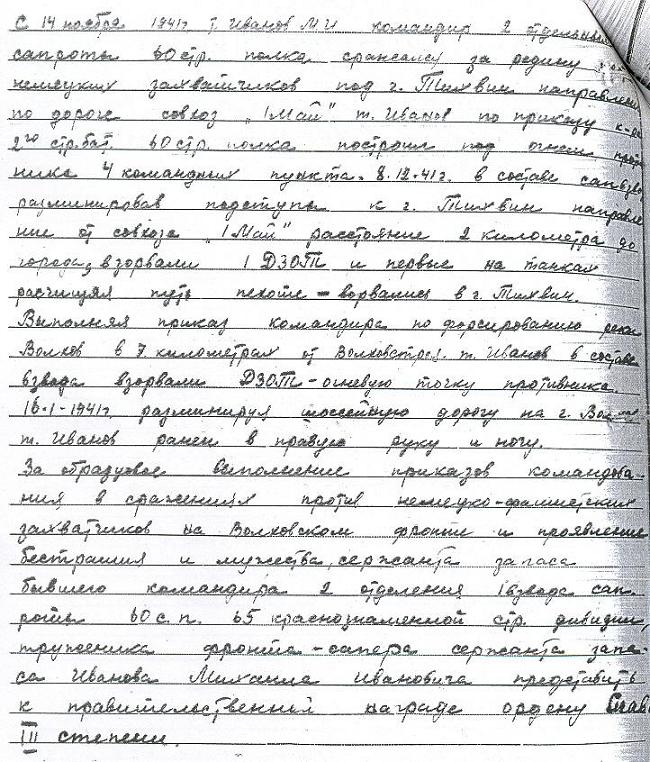 С 14 ноября 1941г т. Иванов М И командир 2 отделения
сапроты 60 стр. полка сражаясь за родину
немецких захватчиков под г. Тихвин направлен
по дороге совхоз „1 Май" т. Иванов по приказу к-ра
2го стр. бат. 60 стр. полка построил под огнем против
ника 4 командных пункта. 8.12.41г. в составе сапвзво
разминировав подступы к г. Тихвин направле
ние от совхоза „1 Май" расстояние 2 километра до
города, взорвали 1 ДЗОТ и первые на танках
расчищая путь пехоте – ворвались в г. Тихвин.
Выполняя приказ командира по форсированию реки
Волхов в 7 километрах от Волховстроя т. Иванов в составе
взвода взорвали ДЗОТ – огневую точку противника.
16.1-1941г. разминируя шоссейную дорогу на г.
т. Иванов ранен в правую руку и ногу.
За образцовое выполнение приказов командова-
ния в сражениях против немецко-фашистских
захватчиков на Волховском фронте и проявление
бестрашия и мужества, сержанта запаса
бывшего командира 2 отделения 1 взвода сап.
роты 60 с.п. 65 краснознаменной стр. дивизии,
труженика фронта – сапера сержанта запа-
са Иванова Михаила Ивановича представить
к правительственной награде ордену Слав
III степени.